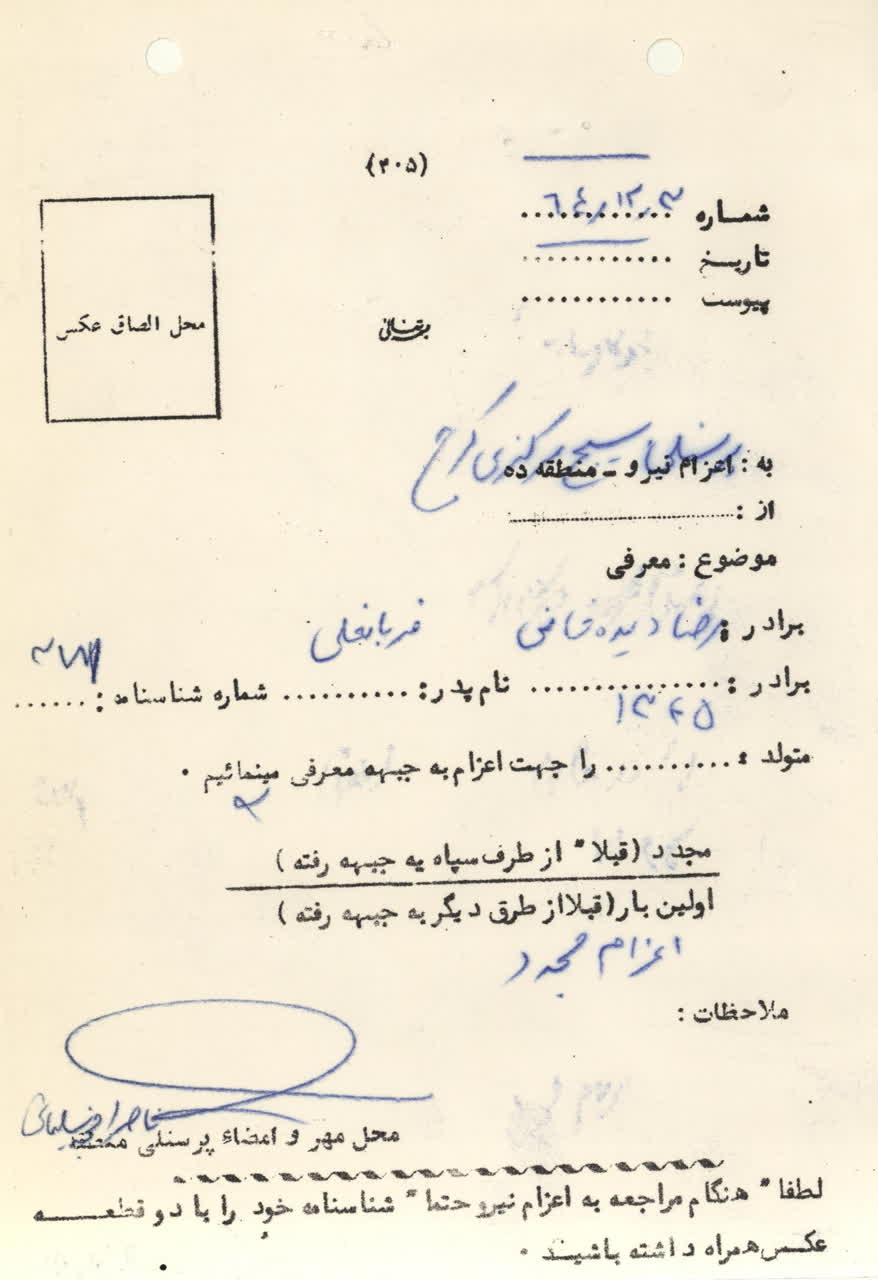 (۴۰۵)
شماره ۶۴/۱۲/۳
تاریخ ............
پیوست ............
بسمه‌تعالی
محل الصاق عکس
به : اعزام نیرو - منطقه ده
بسیج مرکزی کرج
از : ....................
موضوع : معرفی
برادر : رضا دیده قاضی قربانعلی
برادر : ............... نام پدر : .......... شماره شناسنامه : ......
۱۳۴۵
متولد : .......... را جهت اعزام به جبهه معرفی مینمائیم .
مجدد (قبلا" از طرف سپاه به جبهه رفته )
اولین بار(قبلااز طرق دیگر به جبهه رفته )
اعزام مجدد
ملاحظات :
محل مهر و امضاء پرسنلی منطقه
لطفا" هنگام مراجعه به اعزام نیرو حتما" شناسنامه خود را با دو قطعه
عکس همراه داشته باشیند .